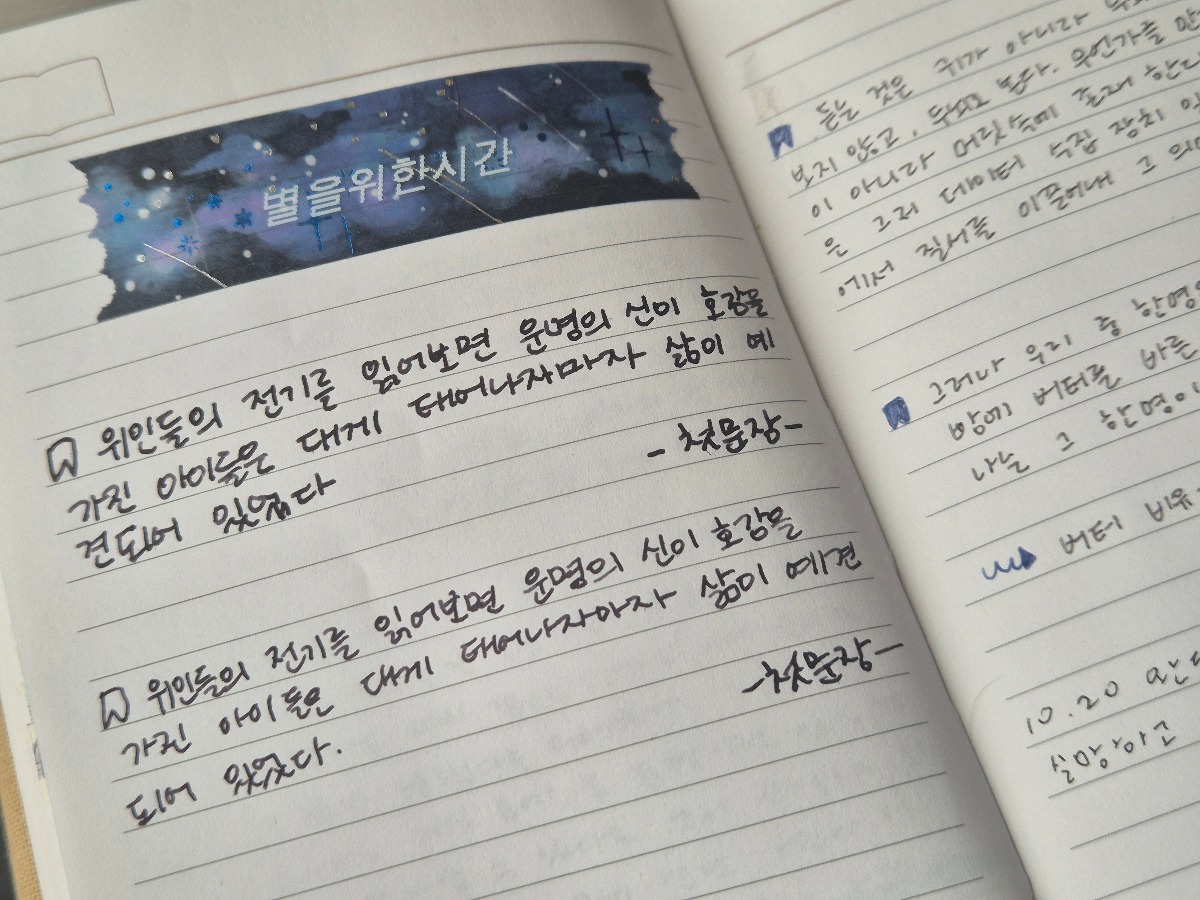 별을위한시간
위인들의 전기를 읽어보면 운명의 신이 호감을
가진 아이들은 대게 태어나자마자 삶이 예
견되어 있었다
- 첫문장-
위인들의 전기를 읽어보면 운명의 신이 호감을
가진 아이들은 대게 태어나자마자 삶이 예견
되어 있었다.
-첫문장-
듣는 것은 귀가 아니라
보지 않고, 뇌로 본다. 무언가를
이 아니라 머릿속에 존재 한다
은 그저 데이터 수집 장치
에서 질서를 이끌어내 그
그러나 우리 중 한명이
빵에 버터를 바른
나는 그 한명이
버터에 비유
10.20
실망하고